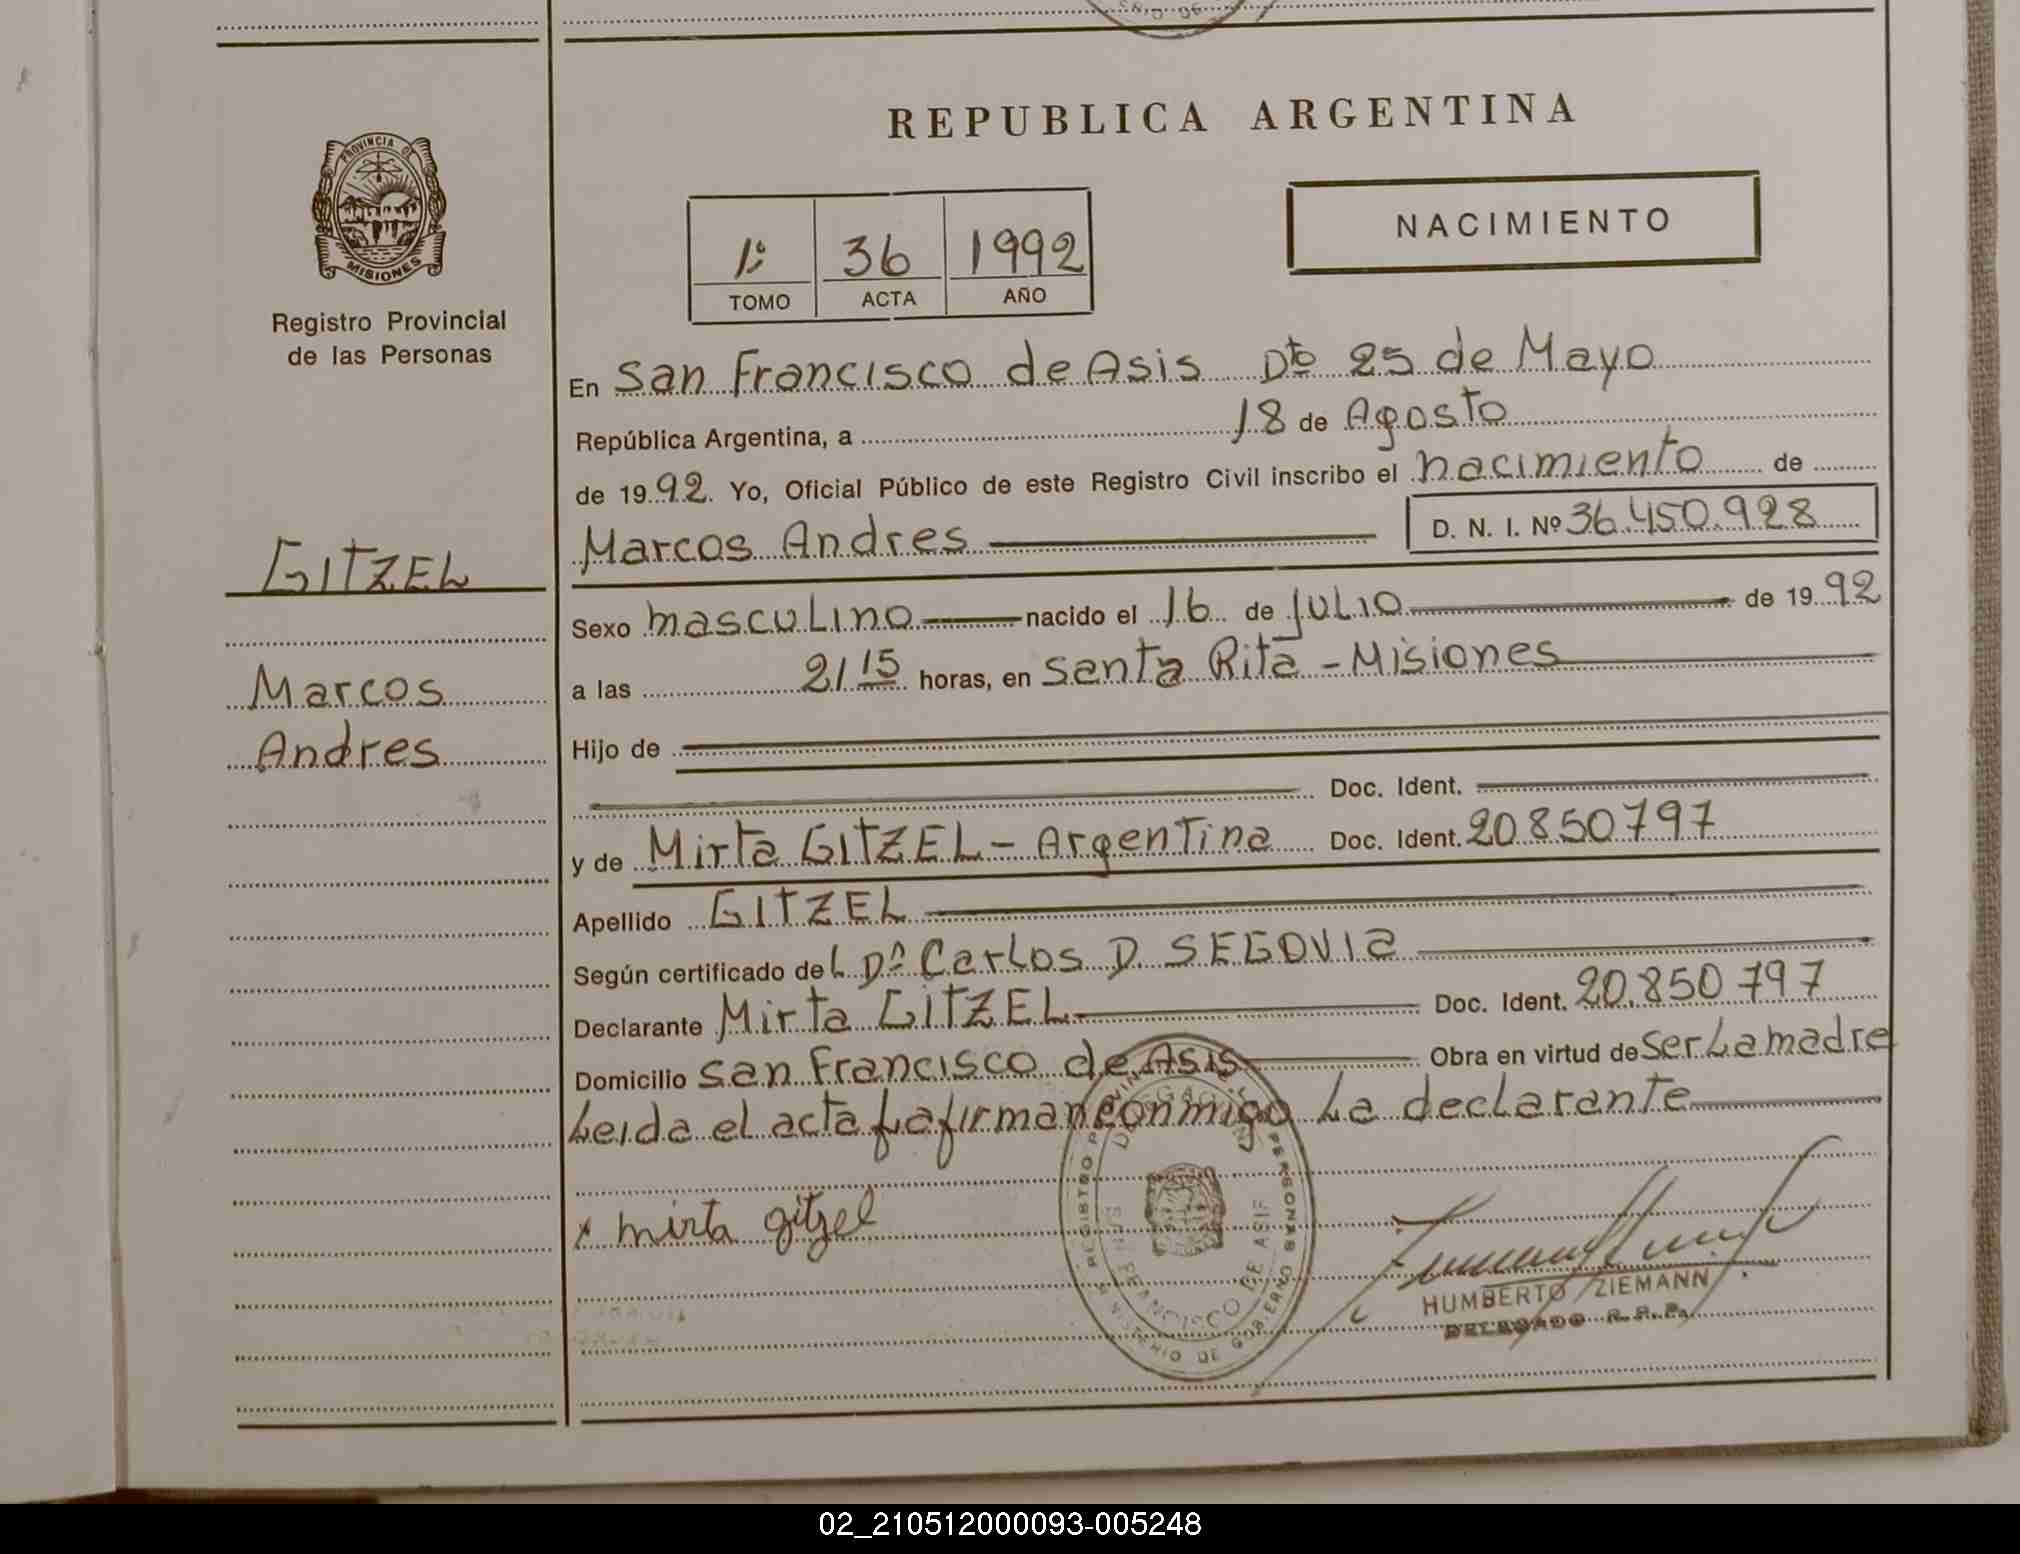 REPUBLICA ARGENTINA
PROVINCIA DE
MISIONES
Registro Provincial
de las Personas
NACIMIENTO
1º 36 1992
TOMO ACTA AÑO
En San Francisco de Asis Dto 25 de Mayo
República Argentina, a 18 de Agosto
de 1992. Yo, Oficial Público de este Registro Civil inscribo el nacimiento de
Marcos Andres D. N. I. Nº 36.450.928
GITZEL
Marcos
Andres
Sexo masculino nacido el 16 de JULIO de 1992
a las 21 15 horas, en Santa Rita - Misiones
Hijo de
Doc. Ident.
y de Mirta GITZEL - Argentina Doc. Ident. 20.850797
Apellido GITZEL
Según certificado del Dr Carlos D. SEGOVIA
Declarante Mirta GITZEL Doc. Ident. 20.850 797
Domicilio San Francisco de Asis Obra en virtud de ser La madre
Leida el acta La firman conmigo La declarante
x mirta gitzel
REGISTRO PERSONAS
MINISTERIO DE GOBIERNO
SAN FRANCISCO DE ASIS
HUMBERTO ZIEMANN
DELEGADO R.P.P.
02_210512000093-005248